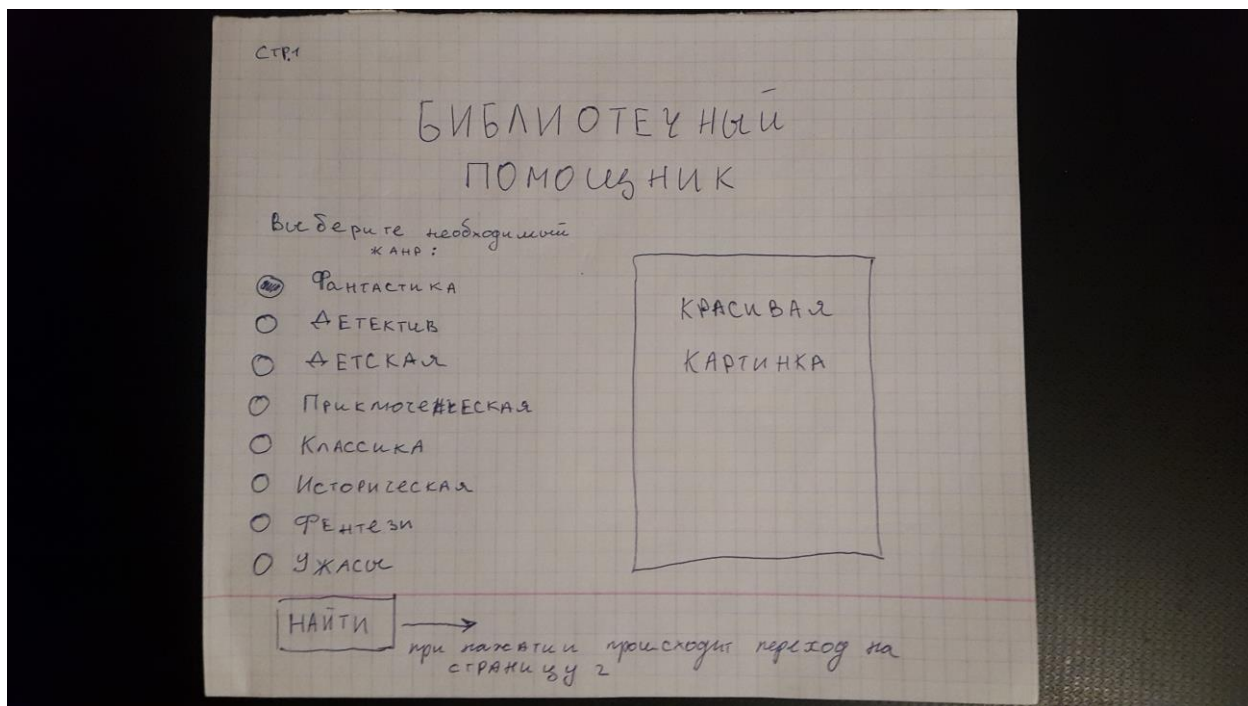 СТР.1
БИБЛИОТЕЧНЫЙ
ПОМОЩНИК
Выберите необходимый
ЖАНР:
Фантастика
Детектив
Детская
Приключенческая
Классика
Историческая
Фентези
Ужасы
КРАСИВАЯ
КАРТИНКА
НАЙТИ
при нажатии происходит переход на
страницу 2